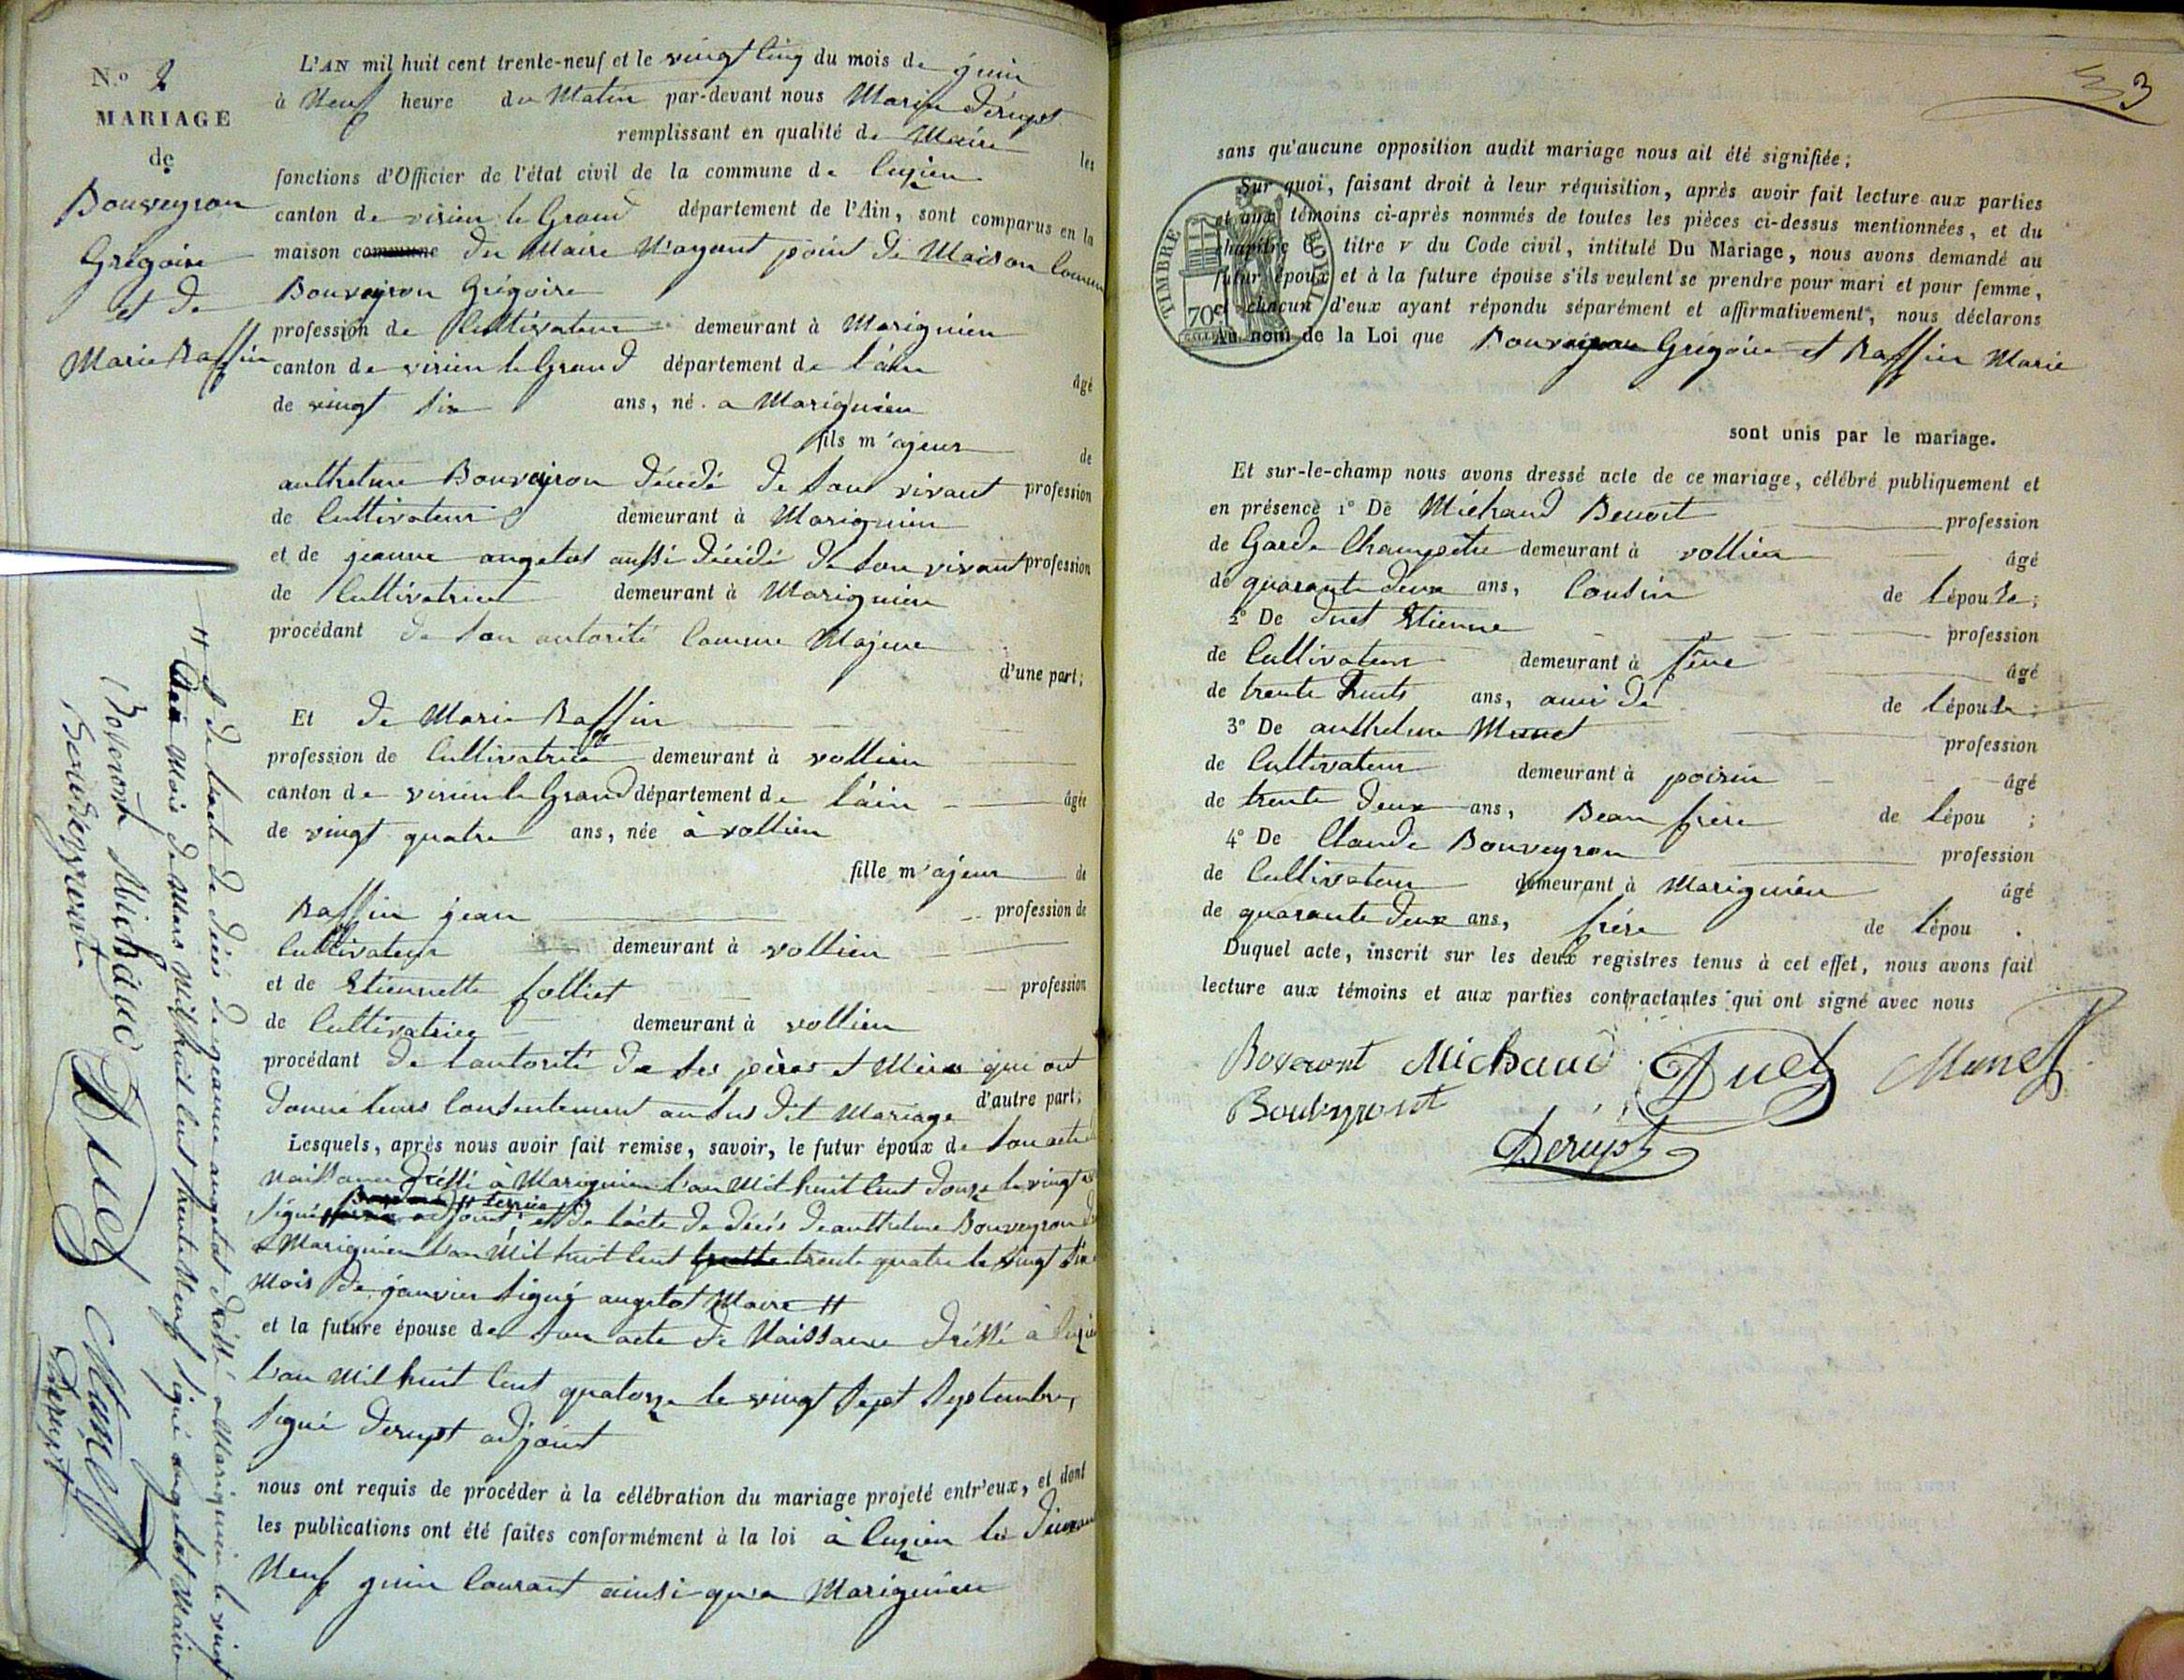 N.º 2
MARIAGE
de
Bouveyron
Grégoire
et de
Marie Raffin
L'AN mil huit cent trente-neuf et le vingt cinq du mois de juin
à Neuf heure du Matin par-devant nous Marin Dérupt
remplissant en qualité de Maire les
fonctions d'Officier de l'état civil de la commune de Cuzieu
canton de virieu le Grand département de l'Ain, sont comparus en la
maison commune du Maire N'ayant point de Maison Commune
Bouveyron Grégoire
profession de Cultivateur demeurant à Marignieu
canton de virieu le Grand département de l'ain âgé
de vingt six ans, né a Marignieu
fils m'ajeur de
anthelme Bouveyron décédé de son vivant profession
de Cultivateur demeurant à Marignieu
et de jeanne angelot aussi décédé de son vivant profession
de Cultivatrice demeurant à Marignieu
procédant de son autorité Comme Majeur
d'une part;
Et de Marie Raffin
profession de Cultivatrice demeurant à vollien
canton de virieu le Grand département de l'ain âgée
de vingt quatre ans, née à vollien
fille m'ajeur de
Raffin jean profession de
Cultivateur demeurant à vollien
et de Etiennette folliet profession
de Cultivatrice demeurant à vollien
procédant de l'autorité de ses pères et Mères qui ont
donné leurs Consentement au sus dit Mariage d'autre part;
Lesquels, après nous avoir fait remise, savoir, le futur époux de son acte de
Naissance dréssé à Marignieu l'an Mil huit Cent douze le vingt
signé adjoint, et de l'acte de décés de anthelme Bouveyron
a Marignieu l'an Mil huit Cent trente quatre le vingt six
Mois de janvier signé angelot Maire #
et la future épouse de son acte de Naissance dréssé à Cuzieu
l'an Mil huit Cent quatorze le vingt sept septembre,
signé Derupt adjoint
nous ont requis de procéder à la célébration du mariage projeté entr'eux, et dont
les publications ont été faites conformément à la loi à Cuzieu le deux et
Neuf juin Courant ainsi qu'a Marignieu
# et de l'acte de décés de jeanne angelot dréssé a Marignieu le vingt
Mois de Mars Mil huit Cent trente Neuf signé angelot Maire
Boveront Michaud Duet Munet
Bouveyront Derupt
3
sans qu'aucune opposition audit mariage nous ait été signifiée;
Sur quoi, faisant droit à leur réquisition, après avoir fait lecture aux parties
et aux témoins ci-après nommés de toutes les pièces ci-dessus mentionnées, et du
chapitre 6 titre v du Code civil, intitulé Du Mariage, nous avons demandé au
futur époux et à la future épouse s'ils veulent se prendre pour mari et pour femme,
et chacun d'eux ayant répondu séparément et affirmativement, nous déclarons
Au nom de la Loi que Bouveyron Grégoire et Raffin Marie
TIMBRE ROYAL
70c
sont unis par le mariage.
Et sur-le-champ nous avons dressé acte de ce mariage, célébré publiquement et
en présence 1º De Michaud Benoit profession
de Garde Champetre demeurant à vollien âgé
de quarante deux ans, Cousin de l'épouse;
2º De duet Etienne profession
de Cultivateur demeurant à âgé
de trente huits ans, ami de de l'épouse;
3º De anthelme Munet profession
de Cultivateur demeurant à poisieu âgé
de trente deux ans, Beau frère de l'épou ;
4º De Claude Bouveyron profession
de Cultivateur demeurant à Marignieu âgé
de quarante deux ans, frére de l'épou .
Duquel acte, inscrit sur les deux registres tenus à cet effet, nous avons fait
lecture aux témoins et aux parties contractantes qui ont signé avec nous
Boveront Michaud Duet Munet
Bouveyront
Derupt